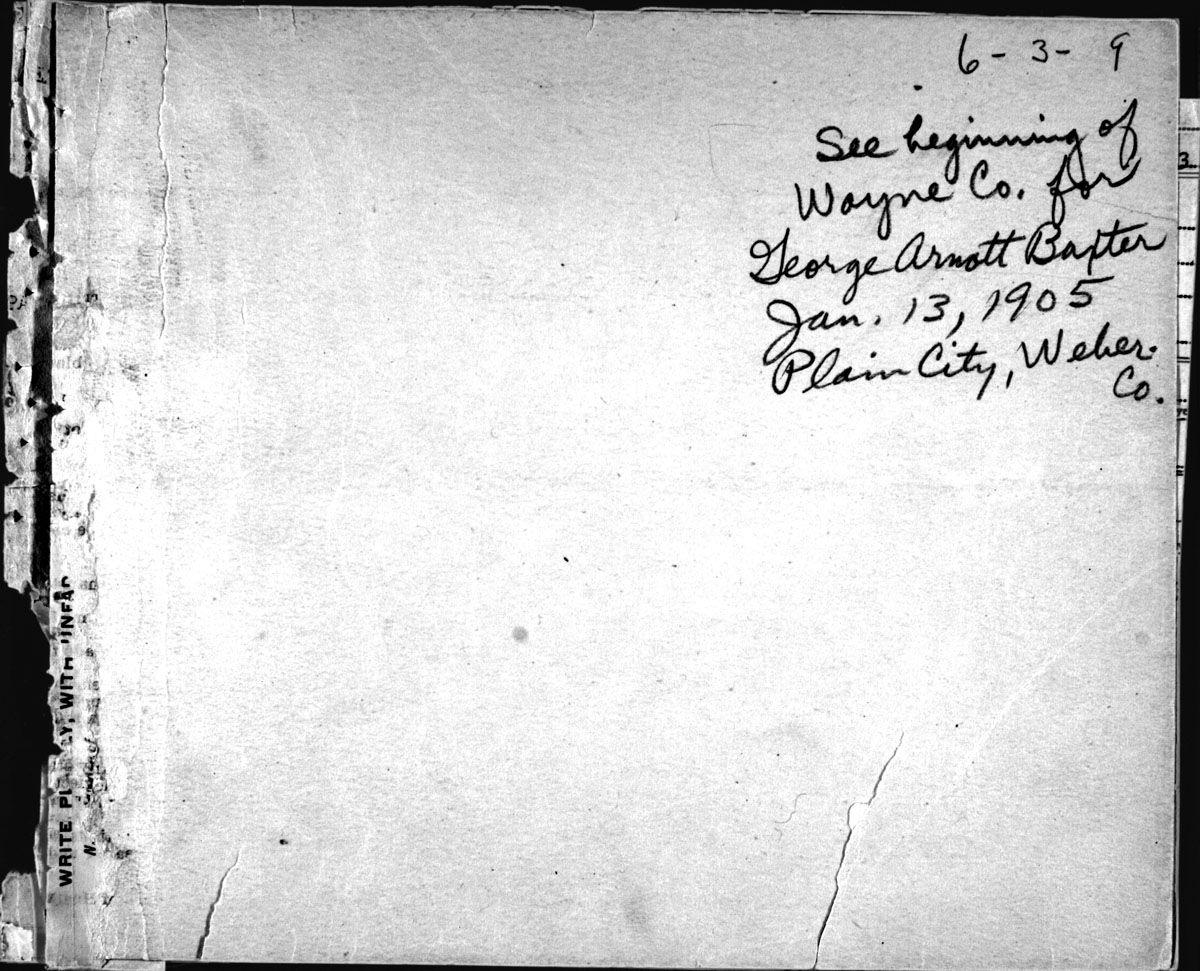 6-3-9
See beginning of
Wayne Co. for
George Arnott Baxter
Jan. 13, 1905
Plain City, Weber
Co.
WRITE PLAINLY, WITH UNFAD
N.
3